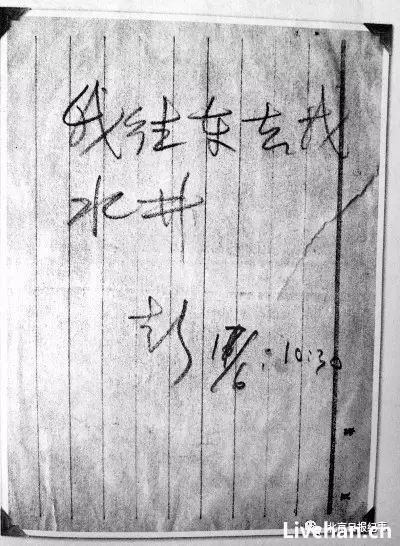 我往东去找
水井
彭 17/6:10:30
Livehan.cn